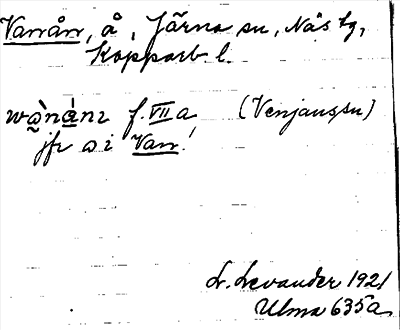 Vanån, å, Järna sn, Näs tg,
Kopparb. l.
f. VII a (Venjanssn)
jfr a i Van!
L. Levander 1921
Ulma 635a